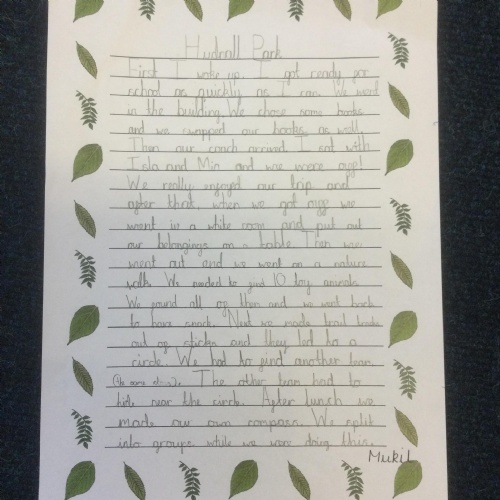 Hudnall Park
First I woke up. I got ready for
school as quickly as I can. We went
in the building. We chose some books
and we swapped our books as well.
Then our coach arrived. I sat with
Isla and Mia and we were off!
We really enjoyed our trip and
after that, when we got off we
went in a white room and put out
our belongings on a table. Then we
went out and we went on a nature
walk. We needed to find 10 toy animals.
We found all of them and we went back
to have snack. Next we made trails
out of sticks and they led to a
circle. We had to find another team
The other team had to
hide near the circle. After lunch we
made our own compass. We split
into groups while we were doing this.
Mukil